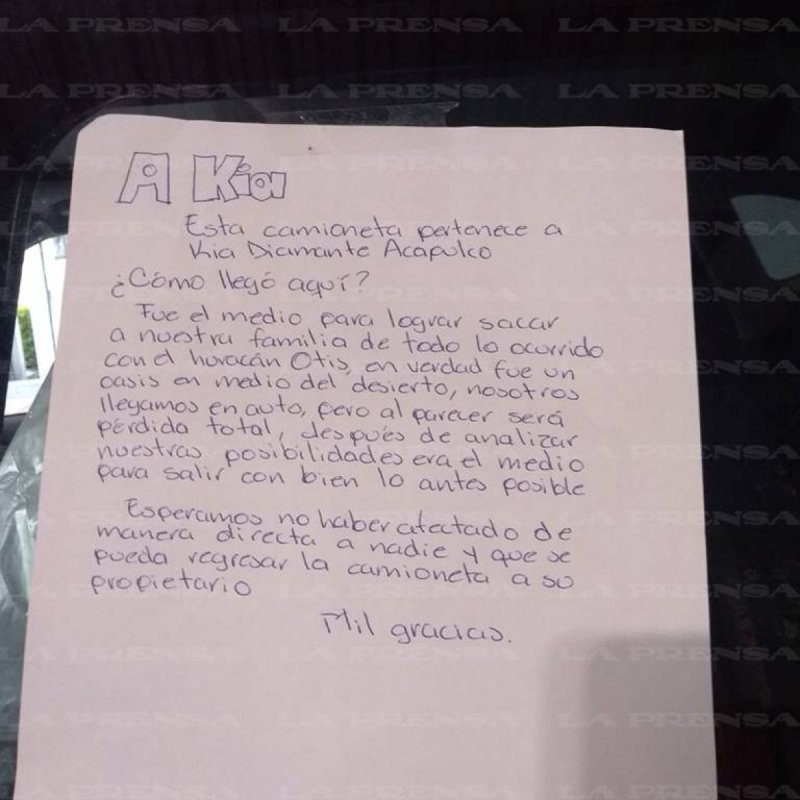 A Kia
Esta camioneta pertenece a
Kia Diamante Acapulco
¿Cómo llegó aquí?
Fue el medio para lograr sacar
a nuestra familia de todo lo ocurrido
con el huracán Otis, en verdad fue un
oasis en medio del desierto, nosotros
llegamos en auto, pero al parecer será
pérdida total, después de analizar
nuestras posibilidades era el medio
para salir con bien lo antes posible
Esperamos no haber afectado de
manera directa a nadie y que se
pueda regresar la camioneta a su
propietario
Mil gracias.
LA PRENSA